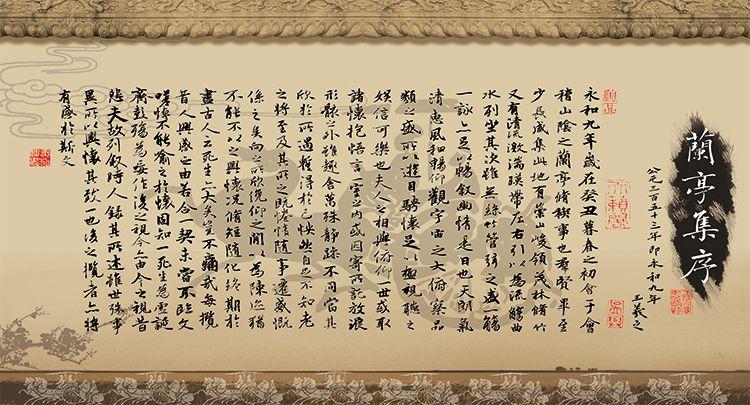 蘭亭集序
公元三百五十三年 即永和九年
王羲之
永和九年歲在癸丑暮春之初會于會
稽山陰之蘭亭脩稧事也群賢畢至
少長咸集此地有崇山峻領茂林脩竹
又有清流激湍暎帶左右引以為流觴曲
水列坐其次雖無絲竹管弦之盛一觴
一詠亦足以暢敘幽情是日也天朗氣
清惠風和暢仰觀宇宙之大俯察品
類之盛所以遊目騁懷足以極視聽之
娛信可樂也夫人之相與俯仰一世或取
諸懷抱悟言一室之內或因寄所託放浪
形骸之外雖趣舍萬殊靜躁不同當其
欣於所遇暫得於己怏然自足不知老
之將至及其所之既惓情隨事遷感慨
係之矣向之所欣俛仰之間以為陳迹猶
不能不以之興懷況脩短隨化終期於
盡古人云死生亦大矣豈不痛哉每攬
昔人興感之由若合一契未嘗不臨文
嗟悼不能喻之於懷固知一死生為虛誕
齊彭殤為妄作後之視今亦由今之視昔
悲夫故列敘時人錄其所述雖世殊事
異所以興懷其致一也後之攬者亦將
有感於斯文